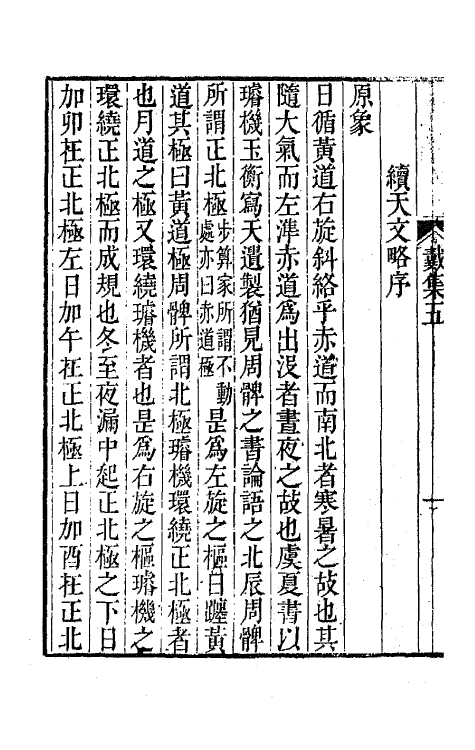 戴集五
一
續天文略序
原象
日循黃道右旋斜絡乎赤道而南北者寒暑之故也其
隨大氣而左準赤道爲出沒者晝夜之故也虞夏書以
璿機玉衡寫天遺製猶見周髀之書論語之北辰周髀
所謂正北極步算家所謂不動處亦曰赤道極是爲左旋之樞日躔黃
道其極曰黃道極周髀所謂北極璿機環繞正北極者
也月道之極又環繞璿機者也是爲右旋之樞璿機之
環繞正北極而成規也冬至夜漏中起正北極之下日
加卯在正北極左日加午在正北極上日加酉在正北